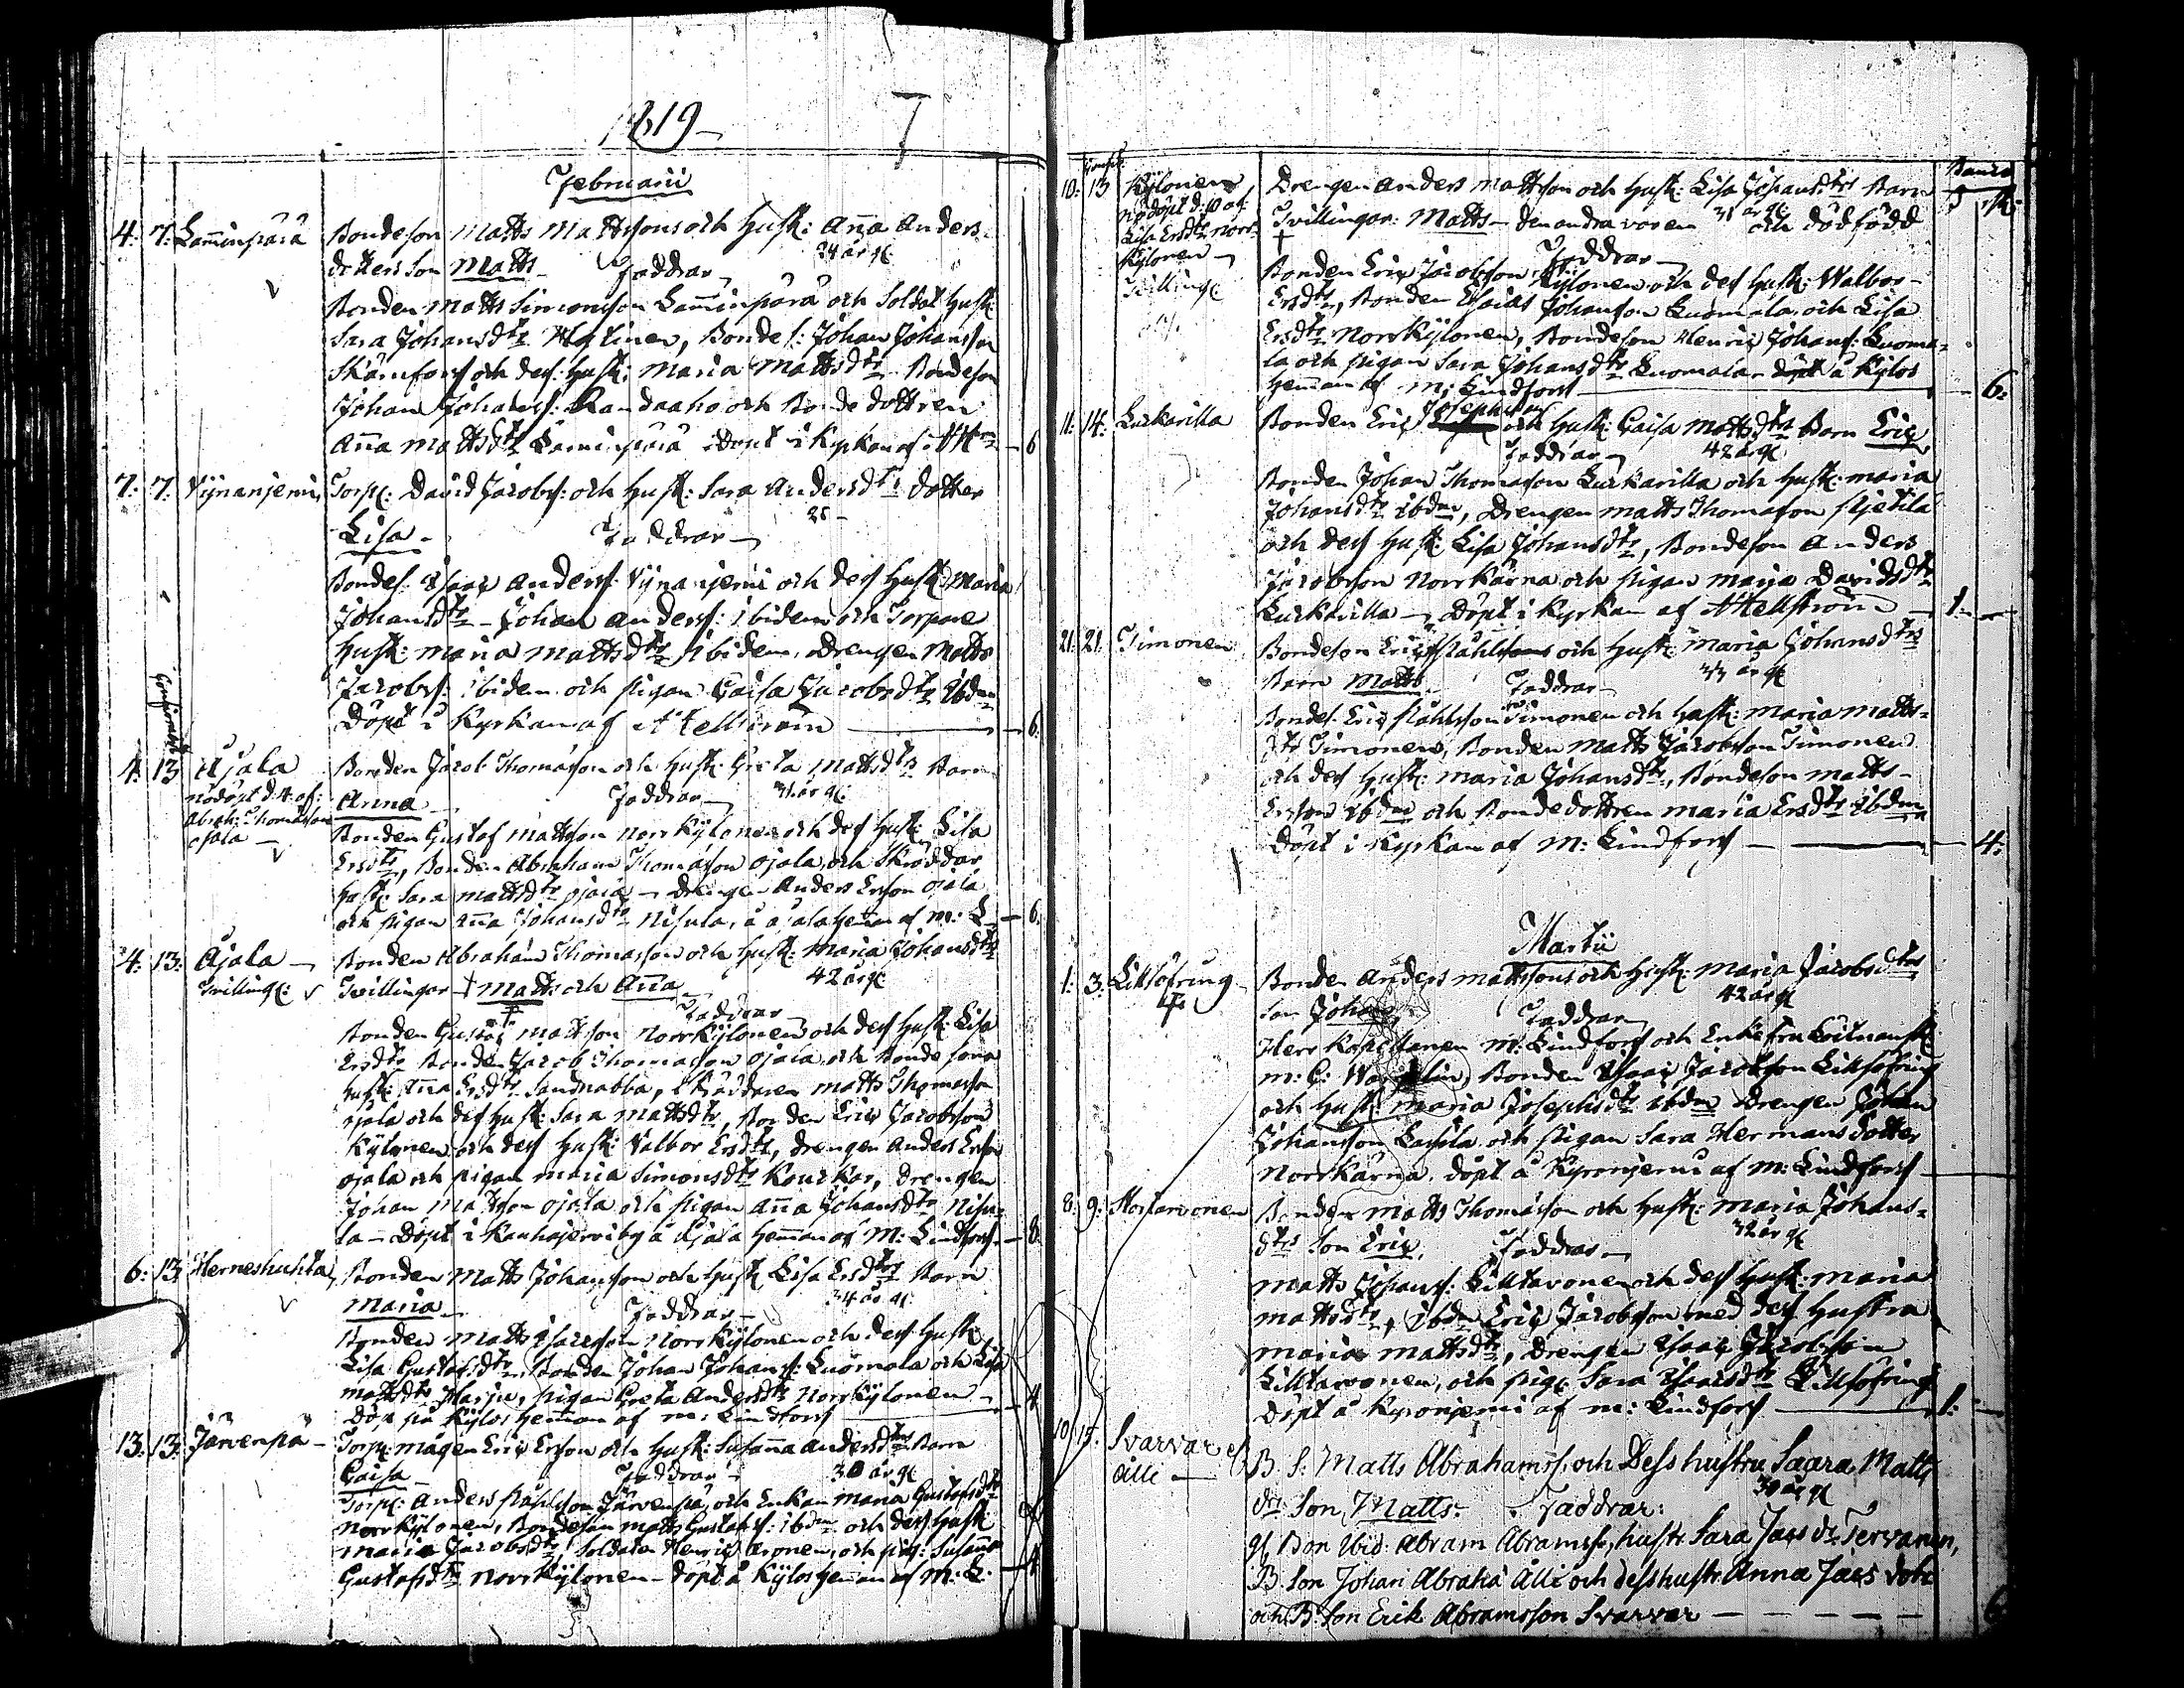 1819
Februarii
4. 7. Laminpärä Bondeson Matts Mattssons och Hust: Anna Anders-
dotters Son Matts Faddrar 24 år g:
Bonden Matts Simonsson Laminpärä och Soldat Hust:
Sara Johansdtr, Bondes: Johan Johansson
och dess Hust: Maria Mattsdtr Bondeson
Johan Johanss: Randaaho och Bonde dottren
Anna Mattsdtr Laminpärä Döpt i Kyrkan af 6
7. 7. Vijnanjemi Torp: David Jacobss: och Hust: Sara Andersdtrs dotter
Lisa Faddrar 28
Bondes: Isaac Anderss: Vijnanjemi och dess Hust: Maria
Johansdtr Johan Anderss: ibidem och Torpare
Hust: Maria Mattsdtr ibidem, Drengen Matts
Jacobss: ibidem och pigan Caisa Jacobsdtr ibdm
Döpt i Kyrkan af A Hellström 6.
4. 13 Ajala Bonden Jacob Thomasson och Hust: Greta Mattsdtrs Barn
nöddöpt d. 4 af: Anna Faddrar år g:
Abrah: Thomasson Bonden Gustaf Mattsson Norrkylonen och dess Hust: Lisa
Ojala Ersdtr, Bonden Abraham Thomasson Ojala och Skräddar
Hust: Sara Mattsdtr Ojala Drengen Anders Ersson Ojala
och pigan Anna Johansdtr Nisula, å Ajala Hemman af M: L 6.
4. 13. Ajala Bonden Abraham Thomasson och Hust: Maria Johansdtrs
Tvilling: Tvillingar Matts och Anna 42 år g:
Faddrar
Bonden Gustaf Mattsson Norrkylonen och dess Hust: Lisa
Ersdtr Bonden Jacob Thomasson Ojala och Bonde sons
Hust: Anna Ersdtr Sandnabba, Skräddaren Matts Thomasson
Ojala och dess Hust: Sara Mattsdtr, Bonden Eric Jacobsson
Kylonen och dess Hust: Valbor Ersdtr, Drengen Anders Ersson
Ojala och pigan Maria Simonsdtr, Drengen
Johan Mattsson Ojala och pigan Anna Johansdtr Nisu-
la Döpt i Kauhajerviby å Ajala Hemman af M: Lindfors. 8.
6. 13. Herneshuhta Bonden Matts Johansson och Hust: Lisa Ersdtrs Barn
Maria Faddrar 34 år g:
Bonden Matts Isacsson Norrkylonen och dess Hust:
Lisa Gustafsdtr, Bonden Johan Johanss: Luomala och Lisa
Mattsdtr Harju, pigan Greta Andersdtr Norrkylonen
Döpt på Kylos Hemman af M: Lindfors 4
13. 13. Järvenpä Torp: mågen Eric Ersson och Hust: Susanna Andersdtrs Barn
Caisa Faddrar 30 år g:
Torp: Anders Ståhlsson Järvenpä, och Enkan Maria Gustafsdtr
Norrkylonen, Bondeson Matts Gustafss: ibdm och dess Hust:
Maria Jacobsdtr Soldaten Henric Aronen, och pig: Susanna
Gustafsdtr Norrkylonen Döpt å Kylos Hemman af M: L. 4
Banco
10. 13 Kylonen, Drengen Anders Mattsson och Hust: Lisa Johansdtrs Barn
nöddöpt d: 10 af: Tvillingar: Matts den andra voren och dödfödd
Lisa Ersdtr Norr- 38 år g:
Kylonen Faddrar
Tvilling: Bonden Eric Jacobsson Kylonen och dess Hust: Walbor
Ersdtr, Bonden Esaias Johansson Luomala och Lisa
Ersdtr Norrkylonen, Bondeson Henric Johans: Luoma-
la och pigan Sara Johansdtr Luomala döpt å Kylos
Hemman af M: Lindfors 6.
11. 14. Lurkarilla Bonden Eric Josephsson och Hust: Caisa Mattsdtrs Barn Eric
Faddrar 42 år g:
Bonden Johan Thomasson Lurkarilla och Hust: Maria
Johansdtr ibdm, Drengen Matts Thomasson
och dess Hust: Lisa Johansdtr, Bondeson Anders
Jacobsson Norrkärna och pigan Maija Davidsdtr
Lurkarilla Döpt i Kyrkan af A Hellström 1.
21. 21. Timonen Bondeson Eric Ståhlsson och Hust: Maria Johansdtrs
Barn Matts Faddrar år g:
Bondes: Eric Ståhlsson Timonen och Hust: Maria Matts-
dtr Timonen, Bonden Matts Jacobsson Timonen
och dess Hust: Maria Johansdtr, Bondeson Matts
Ersson ibdm och Bondedottren Maria Ersdtr ibdm
Döpt i Kyrkan af M: Lindfors 4.
Martii
1. 3. Lillsöfring Bonden Anders Mattssons och Hust: Maria Jacobsdtrs
Son Johan Faddrar 42 år g:
Herr Kapellanen M: Lindfors och Enkefru
M: C: Bonden Isaac Jacobsson Lillsöfring
och Hust: Maria Josephsdtr ibdm Drengen Johan
Johansson Lassila och pigan Sara Hermans dotter
Norrkärna. Döpt å Kyronjemi af M: Lindfors
8. 9. Stortarvonen Bonden Matts Thomasson och Hust: Maria Johans-
dtrs Son Eric. Faddrar 32 år g:
Matts Johanss: Lilltarvonen och dess Hust: Maria
Mattsdtr, ibdm Eric Jacobsson med dess Hustru
Maria Mattsdtr, Drengen Isaac Jacobsson
Lilltarvonen, och pig: Sara Isaacsdtr Lillsöfring
Döpt å Kyronjemi af M: Lindfors 1.
10. 15. Svarvar B. S: Matts Abrahamss. och Dess hustru Saara Matts
Alli dr Son, Matts. Faddrar: 30 år g:
Bon ibid: Abram Abramss, hustr Sara Jacs dr Tervanen,
B. Son Johan Abraha Alli och dess hustr Anna Jacs dotr
och B. Son Erik Abramsson Svarvar 6